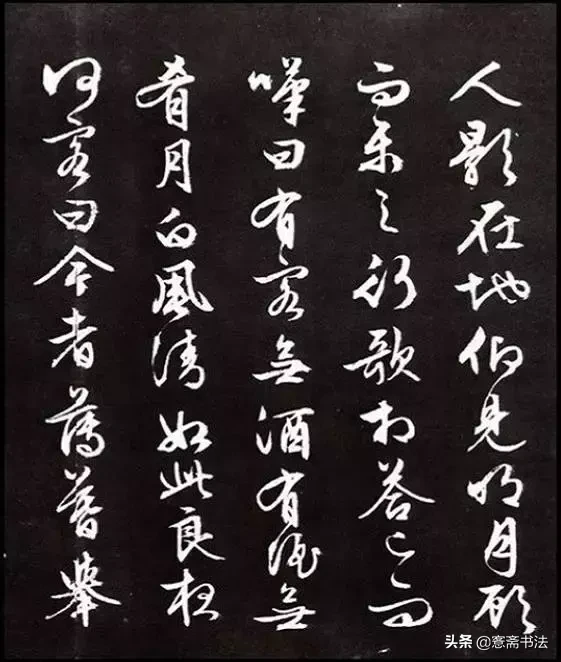 人影在地仰見明月顧
而樂之行歌相答已而
嘆曰有客無酒有酒無
肴月白風清如此良夜
何客曰今者薄暮舉
头条 @斋书法